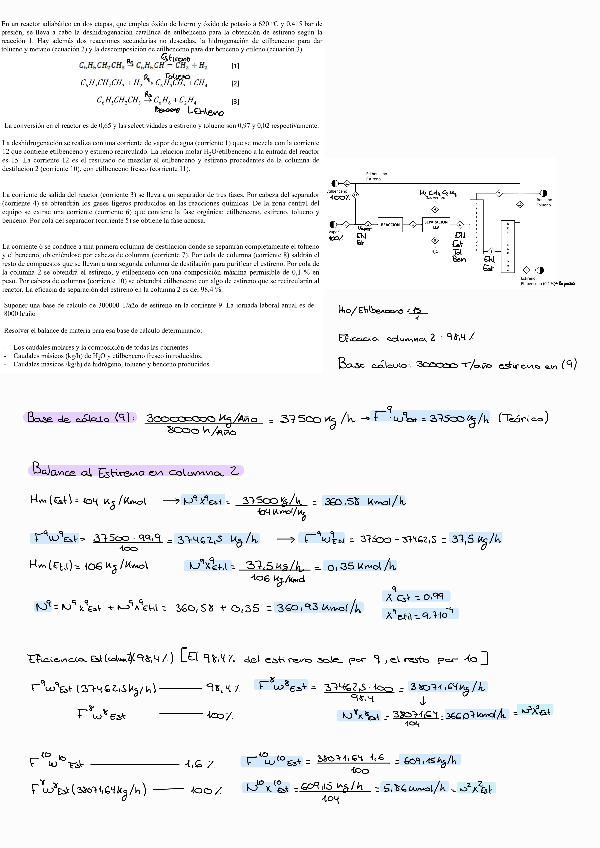 En un reactor adiabático en dos etapas, que emplea óxido de hierro y óxido de potasio a 620 °C y 0,415 bar de
presión, se lleva a cabo la deshidrogenación catalítica de etilbenceno para la obtención de estireno según la
reacción 1. Hay además dos reacciones secundarias no deseadas, la hidrogenación de etilbenceno para dar
tolueno y metano (ecuación 2) y la descomposición de etilbenceno para dar benceno y etileno (ecuación 3)
Estireno
C₆H₅CH₂CH₃ R₁ C₆H₅CH = CH₂ + H₂ [1]
Tolueno
C₆H₅CH₂CH₃ + H₂ R₂ C₆H₅CH₃ + CH₄ [2]
C₆H₅CH₂CH₃ R₃ → C₆H₆ + C₂H₄ [3]
Benceno Etileno
La conversión en el reactor es de 0,65 y las selectividades a estireno y tolueno son 0,97 y 0,02 respectivamente.
La deshidrogenación se realiza con una corriente de vapor de agua (corriente 1) que se mezcla con la corriente
12 que contiene etilbenceno y estireno recirculado. La relación molar H₂O/etilbenceno a la entrada del reactor
es 15. La corriente 12 es el resultado de mezclar el etilbenceno y estireno procedentes de la columna de
destilación 2 (corriente 10), con etilbenceno fresco (corriente 11).
La corriente de salida del reactor (corriente 3) se lleva a un separador de tres fases. Por cabeza del separador
(corriente 4) se obtendrán los gases ligeros producidos en las reacciones químicas. De la zona central del
equipo se extrae una corriente (corriente 6) que contiene la fase orgánica: etilbenceno, estireno, tolueno y
benceno. Por cola del separador (corriente 5) se obtiene la fase acuosa.
La corriente 6 se conduce a una primera columna de destilación donde se separarán completamente el tolueno
y el benceno, obteniéndose por cabezas de columna (corriente 7). Por cola de columna (corriente 8) saldrán el
resto de compuestos que se llevan a una segunda columna de destilación para purificar el estireno. Por cola de
la columna 2 se obtendrá el estireno, y etilbenceno con una composición máxima permisible de 0,1 % en
peso. Por cabeza de columna (corriente 10) se obtendrá etilbenceno con algo de estireno que se recircularán al
reactor. La eficacia de separación del estireno en la columna 2 es del 98,4 %.
Suponer una base de cálculo de 300000 T/año de estireno en la corriente 9. La jornada laboral anual es de
8000 h/año
Resolver el balance de materia para esa base de cálculo determinando:
- Los caudales molares y la composición de todas las corrientes
- Caudales másicos (kg/h) de H₂O y etilbenceno fresco introducidos.
- Caudales másicos (kg/h) de hidrógeno, tolueno y benceno producidos
Etilbenceno
Estireno
Etilbenceno
100%
Vapor
100%
REACCION
SEPARACION
Benceno
Tolueno
Estireno
H₂O/Etilbenceno = 15/1
Eficacia columna 2 : 98,4%
Base cálculo: 300000 T/año estireno en (9)
Base de cálculo (9): 300000000 Kg/Año / 8000 h/Año = 37500 kg/h → F⁹w⁹est = 37500 kg/h (Teórico)
Balance al Estireno en columna 2
Hm (Est) = 104 kg/Kmol → N⁹x⁹Est = 37500 kg/h / 104 kmol/kg = 360.58 Kmol/h
F⁹w⁹Est = 37500 · 99,9 / 100 = 37462,5 kg/h → F⁹w⁹Etil = 37500 - 37462,5 = 37,5 kg/h
Hm (Etil) = 106 kg/Kmol N⁹x⁹etil = 37,5 kg/h / 106 kg/kmol = 0,35 Kmol/h
N⁹ = N⁹x⁹Est + N⁹x⁹Etil = 360,58 + 0,35 = 360,93 Kmol/h
x⁹Est = 0,99
x⁹etil = 9,7·10⁻⁴
Eficiencia Est (colum 2) (98,4%) [El 98,4% del estireno sale por 9, el resto por 10]
F⁹w⁹Est (37462,5 kg/h) —— 98,4% F⁸w⁸Est = 37462,5 · 100 / 98,4 = 38071,64 kg/h
F⁸w⁸Est —— 100% N⁸x⁸Est = 38071,64 / 104 = 366,07 kmol/h = N³x³Est
F¹⁰w¹⁰Est —— 1,6% F¹⁰w¹⁰Est = 38071,64 · 1,6 / 100 = 609,15 kg/h
F⁸w⁸Est (38071,64 kg/h) —— 100% N¹⁰x¹⁰Est = 609,15 kg/h / 104 = 5,86 kmol/h = N²x²Est